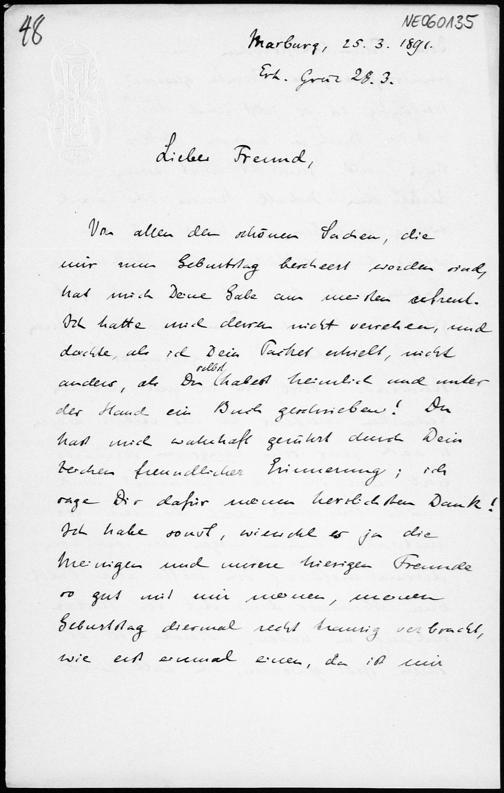 48
NE060135
Marburg, 25. 3. 1891.
Erh. Graz 28. 3.
Lieber Freund,
Von allen den schönen Sachen, die
mir zum Geburtstag bescheert worden sind,
hat mich Deine Gabe am meisten erfreut.
Ich hatte mich dessen nicht versehen, und
dachte, als ich Dein Packet erhielt, nicht
anders, als Du selbst habest heimlich und unter
der Hand ein Buch geschrieben! Du
hast mich wahrhaft gerührt durch Dein
Zeichen freundlicher Erinnerung; ich
sage Dir dafür meinen herzlichsten Dank!
Ich habe sonst, wiewohl es ja die
Meinigen und unsere hiesigen Freunde
so gut mit mir meinen, meinen
Geburtstag diesmal recht traurig verbracht,
wie erst einmal einen, da ist mir